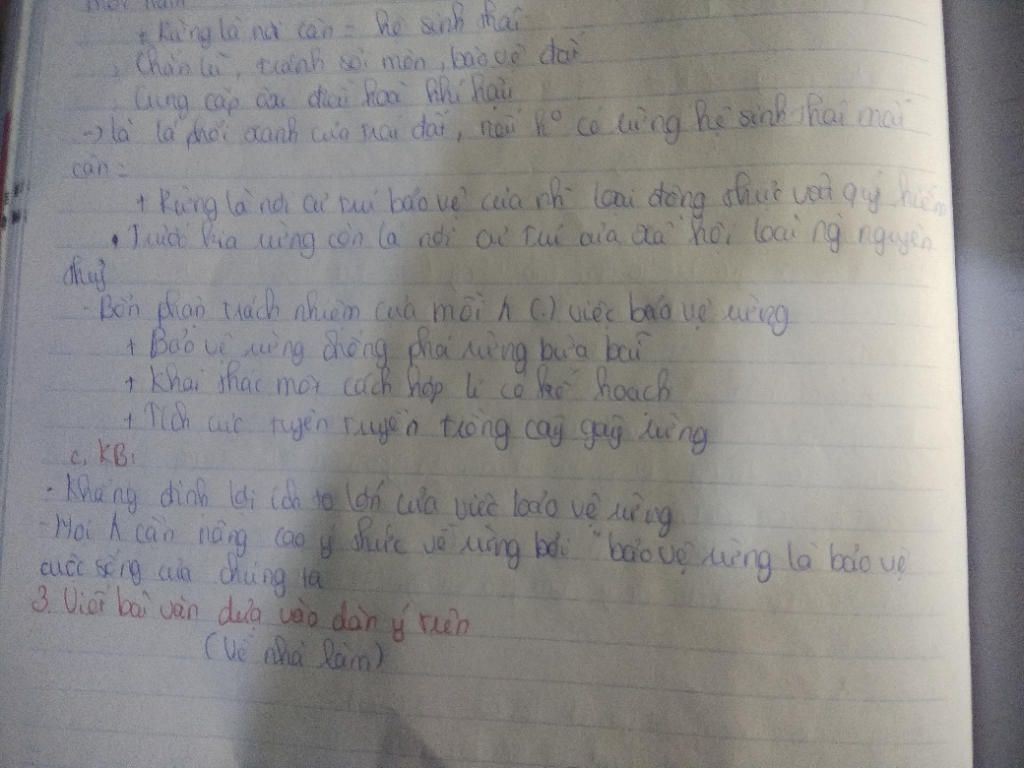 + Rừng là nơi cân = hệ sinh thái
Chắn lũ, tránh sói mòn, bảo vệ đất
Cung cấp oxi điều hoà khí hậu
-> là lá phổi xanh của trái đất, nếu k° có rừng hệ sinh thái mất
cân =
+ Rừng là nơi cư trú bảo vệ của nh~ loài động thực vật quý hiếm
• Trước kia rừng còn là nơi cư trú của xã hội loài ng nguyên
thuỷ
- Bổn phận trách nhiệm của mỗi (.) việc bảo vệ rừng
+ Bảo vệ rừng chống phá rừng bừa bãi
+ Khai thác một cách hợp lí có kế hoạch
+ Tích cực tuyên truyền trồng cây gây rừng
c, KB:
- Khẳng định lợi ích to lớn của việc bảo vệ rừng
- Mọi cần nâng cao ý thức về rừng bởi "bảo vệ rừng là bảo vệ
cuộc sống của chúng ta
3. Viết bài văn dựa vào dàn ý trên
(Về nhà làm)